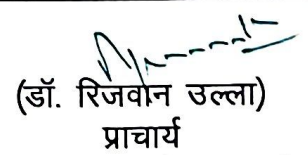 (डॉ. रिजवान उल्ला)
प्राचार्य